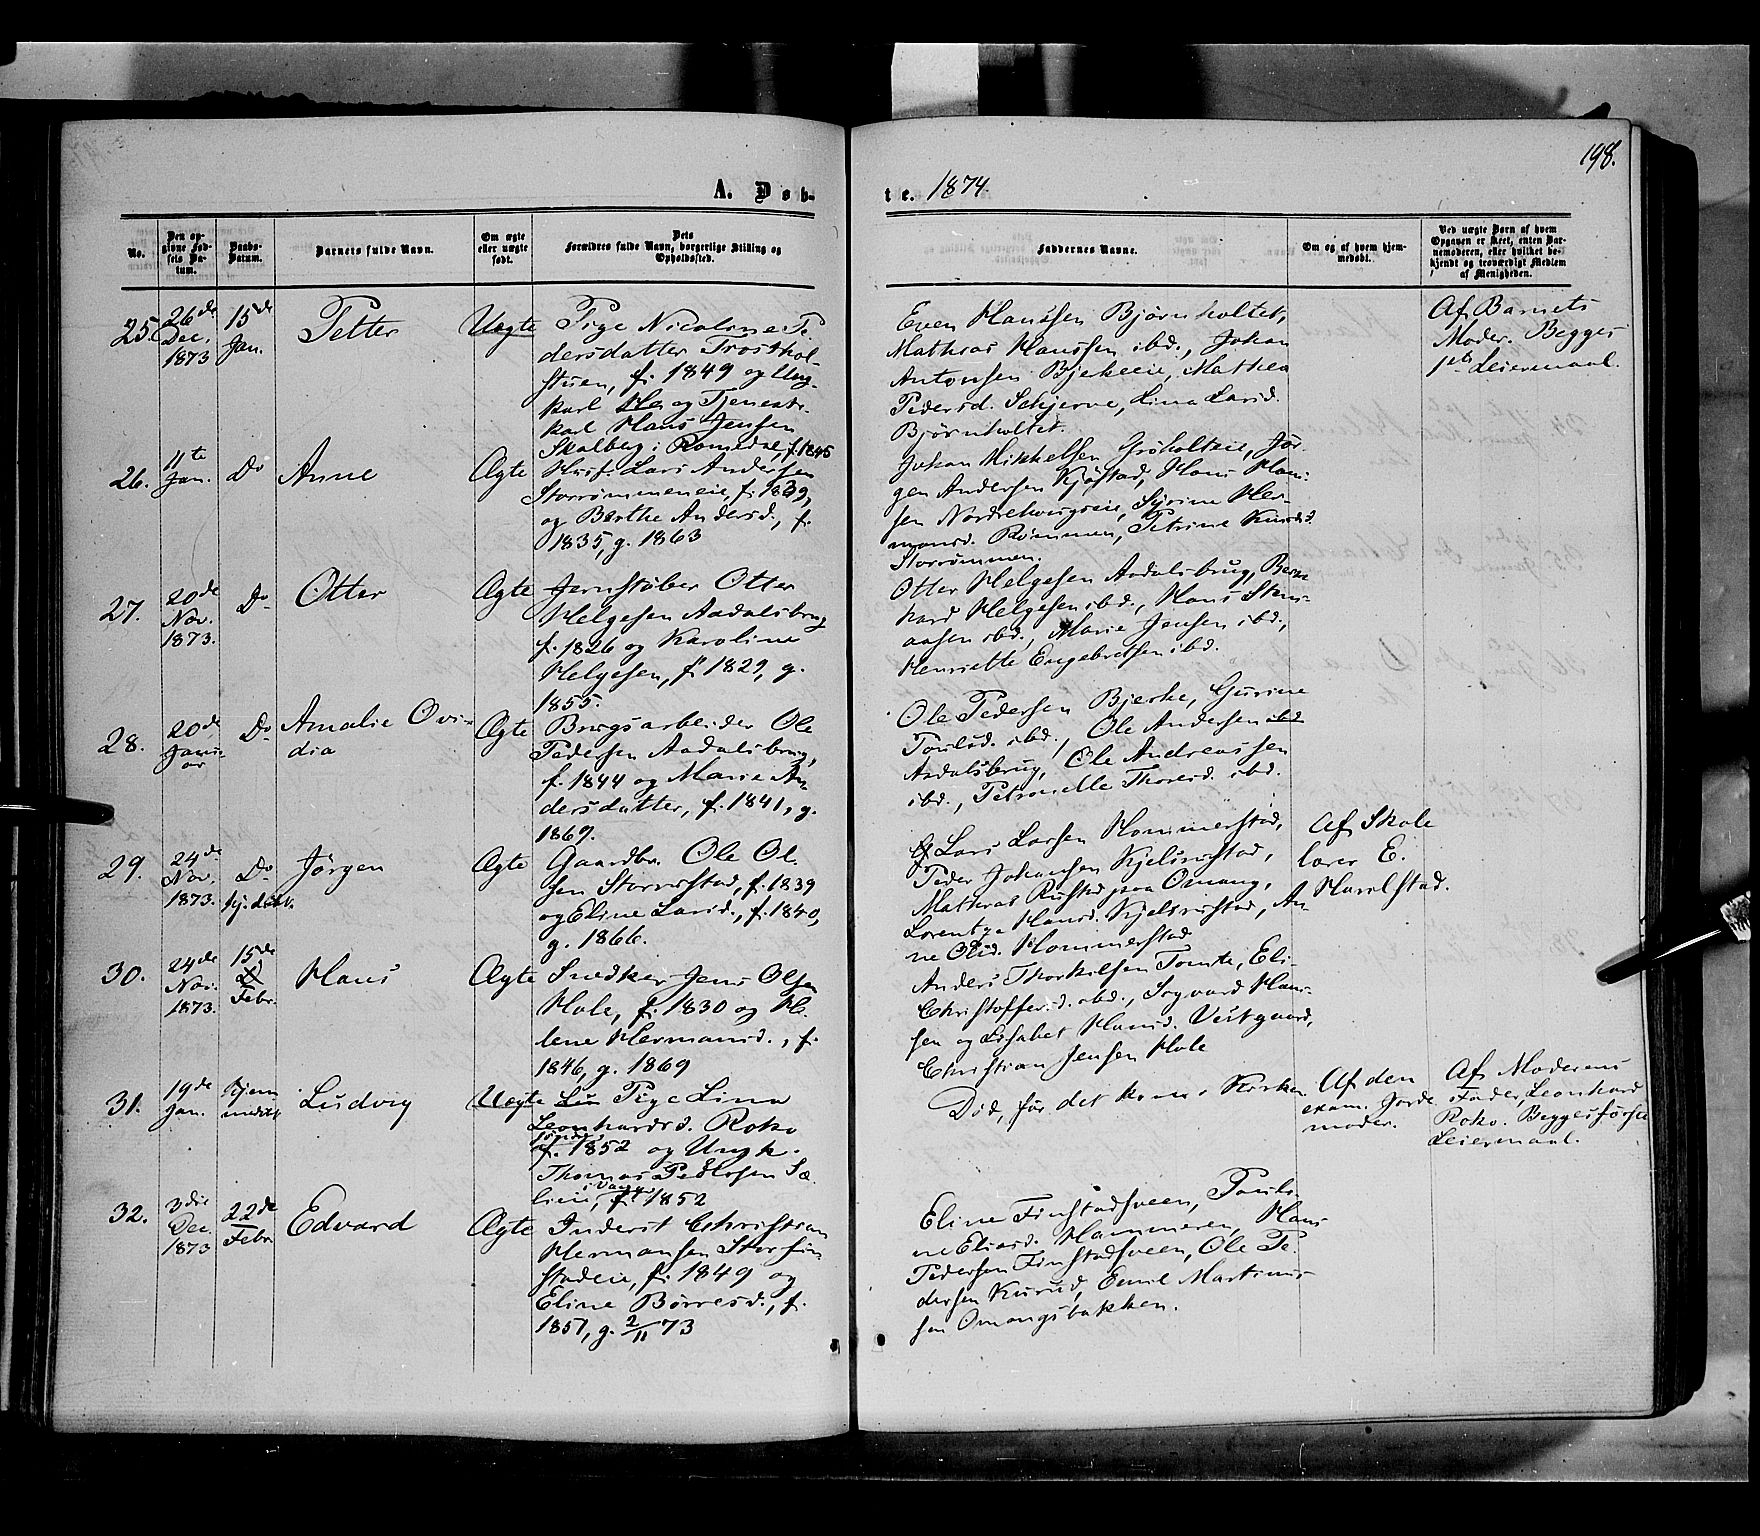 198.
A. Døb-
te. 1874.
No.
Den op-
givne Fød-
sels Da-
tum.
Daabs-
Datum.
Barnets fulde Navn.
Om ægte
eller uægte
født.
Dets
Forældres fulde Navn, borgerlige Stilling og
Opholdssted.
Faddernes Navne.
Om og af hvem hjem-
medøbt.
Ved uægte Børn af hvem
Opgaven er skeet, enten Bar-
nemoderen, eller hvilket be-
kjendt og troværdigt Medlem
af Menigheden.
25.
26de
Dec.
1873
15de
Jan.
Petter
Uægte
Pige Nicoline Pe-
dersdatter Trosthol-
stuen, f. 1849 og Ung-
karl He og Tjeneste-
karl Hans Jensen
Skalberg i Romedal, f. 1845
Even Hanssen Bjørnholtet,
Mathias Hanssen ibd., Johan
Antonsen Bjerkeeie, Mathea
Pedersd. Schjerve, Lina Larsd.
Bjørnholtet.
Af Barnets
Moder. Begges
1ste Leiermaal.
26.
11te
Jan.
Do
Anne
Ægte
Husf. Lars Andersen
Storrømmeneie, f. 1839,
og Berthe Andersd., f.
1835, g. 1863
Johan Mikkelsen Grøholteie, Jør-
gen Andersen Kjøstad, Hans Han-
sen Nordrekvergseie, Syrine Her-
mansd. Rømmen, Petrine Knudsd.
Storrømmen.
27.
20de
Nov.
1873.
Do
Otter
Ægte
Jernstøber Otter
Helgesen Aadalsbrug
f. 1826 og Karoline
Helgesen, f. 1829, g.
1855.
Otter Helgesen Aadalsbrug, Bern-
hard Helgesen ibd., Hans Sten-
aasen ibd., Marie Jensen ibd.,
Henriette Engebretsen ibd.
28.
20de
Janu-
ar
Do
Amalie Ovi-
dia
Ægte
Brugsarbeider Ole
Pedersen Aadalsbrug,
f. 1844 og Marie An-
dersdatter, f. 1841, g.
1869.
Ole Pedersen Bjerke, Gurine
Poulsd. ibd., Ole Andersen ibd
Aadalsbrug, Ole Andreassen
ibd., Petronelle Thoresd. ibd.
29.
24de
Nov.
1873.
Do
hj. døbt.
Jørgen
Ægte
Gaardbr. Ole Ol-
sen Storrustad, f. 1839
og Eline Larsd., f. 1840,
g. 1866.
Lars Larsen Hommerstad,
Peder Johansen Kjelsrustad,
Mathias Rustad paa Omang,
Lorentze Hansd. Kjelsrustad, An-
ne Olsd. Hommerstad
Af Skole
lærer E.
Harelstad.
30.
24de
Nov.
1873.
15de
Febr.
Hans
Ægte
Snedker Jens Olsen
Hole, f. 1830 og He-
lene Hermansd., f.
1846, g. 1869
Anders Thorkilsen Tomte, Eli-
Christoffersd. ibd., Sigvard Han-
sen og Lisabet Hansd. Vestgaard,
Christian Jensen Hole
31.
19de
Jan.
Hjem
medøbt
Ludvig
Uægte
Lin Pige Lina
Leonhardsd. Roko
f. 1852 og Ungk.
Thomas Pedersen Sæ-
lieie, i Vang, f. 1852
Død, før det kom i Kirken
Af den
exam. Jorde
moder.
Af Moderens
Fader, Leonhard
Roko. Begges første
Leiermaal.
32.
3die
Dec.
1873
22de
Febr
Edvard
Ægte
Inderst Christian
Hermansen Storfin-
stadeie, f. 1849 og
Eline Børresd., f.
1851, g. 2/11 73
Eline Finstadsveen, Pauli-
ne Eliasd. Hammeren, Hans
Pedersen Finstadsveen, Ole Pe-
dersen Kurud, Emil Martinus-
sen Omangsbakken.